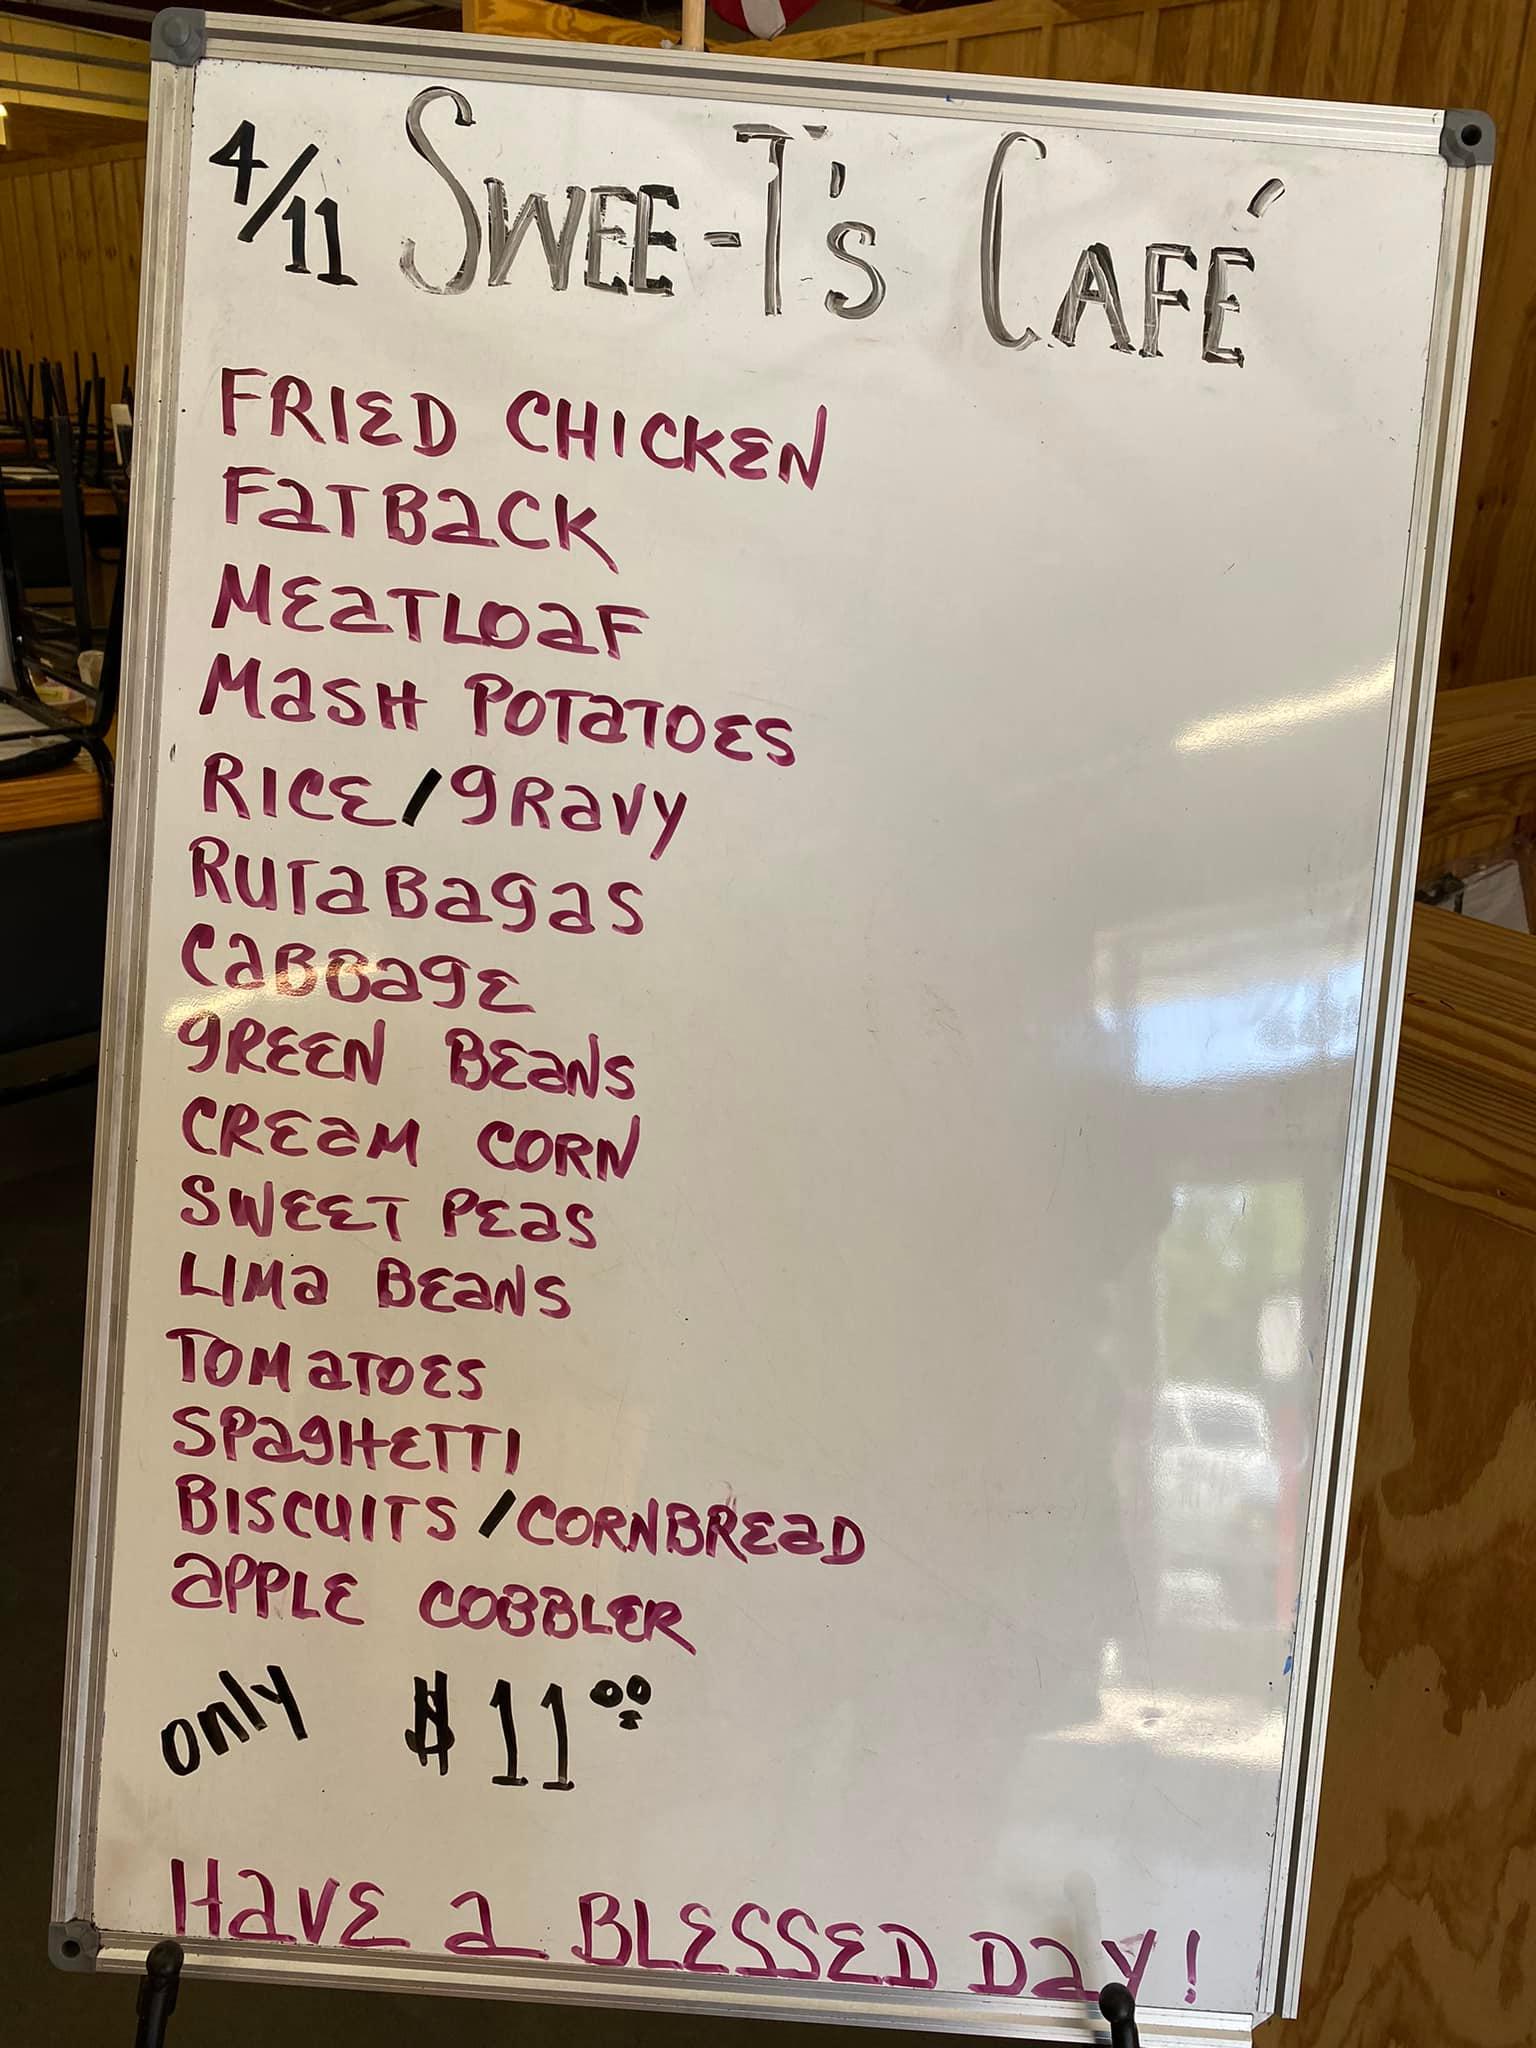 4/11 SWEE-T's CAFÉ
FRIED CHICKEN
FaTBaCK
MEaTLOaF
MaSH POTaTOES
RICE/gRaVY
RUTaBagaS
CaBBagE
gREEN BEaNS
CREaM CORN
SWEET PEaS
LIMa BEaNS
TOMaTOES
SPagHETTI
BISCUITS/CORNBREaD
aPPLE COBBLER
only $11.00
HaVE a BLESSED DaY!